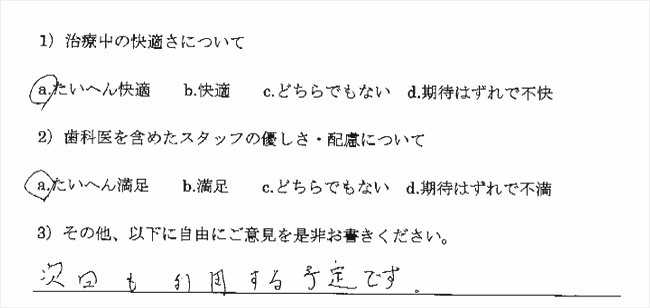 1）治療中の快適さについて
a.たいへん快適　b.快適　c.どちらでもない　d.期待はずれで不快
2）歯科医を含めたスタッフの優しさ・配慮について
a.たいへん満足　b.満足　c.どちらでもない　d.期待はずれで不満
3）その他、以下に自由にご意見を是非お書きください。
次回も利用する予定です。